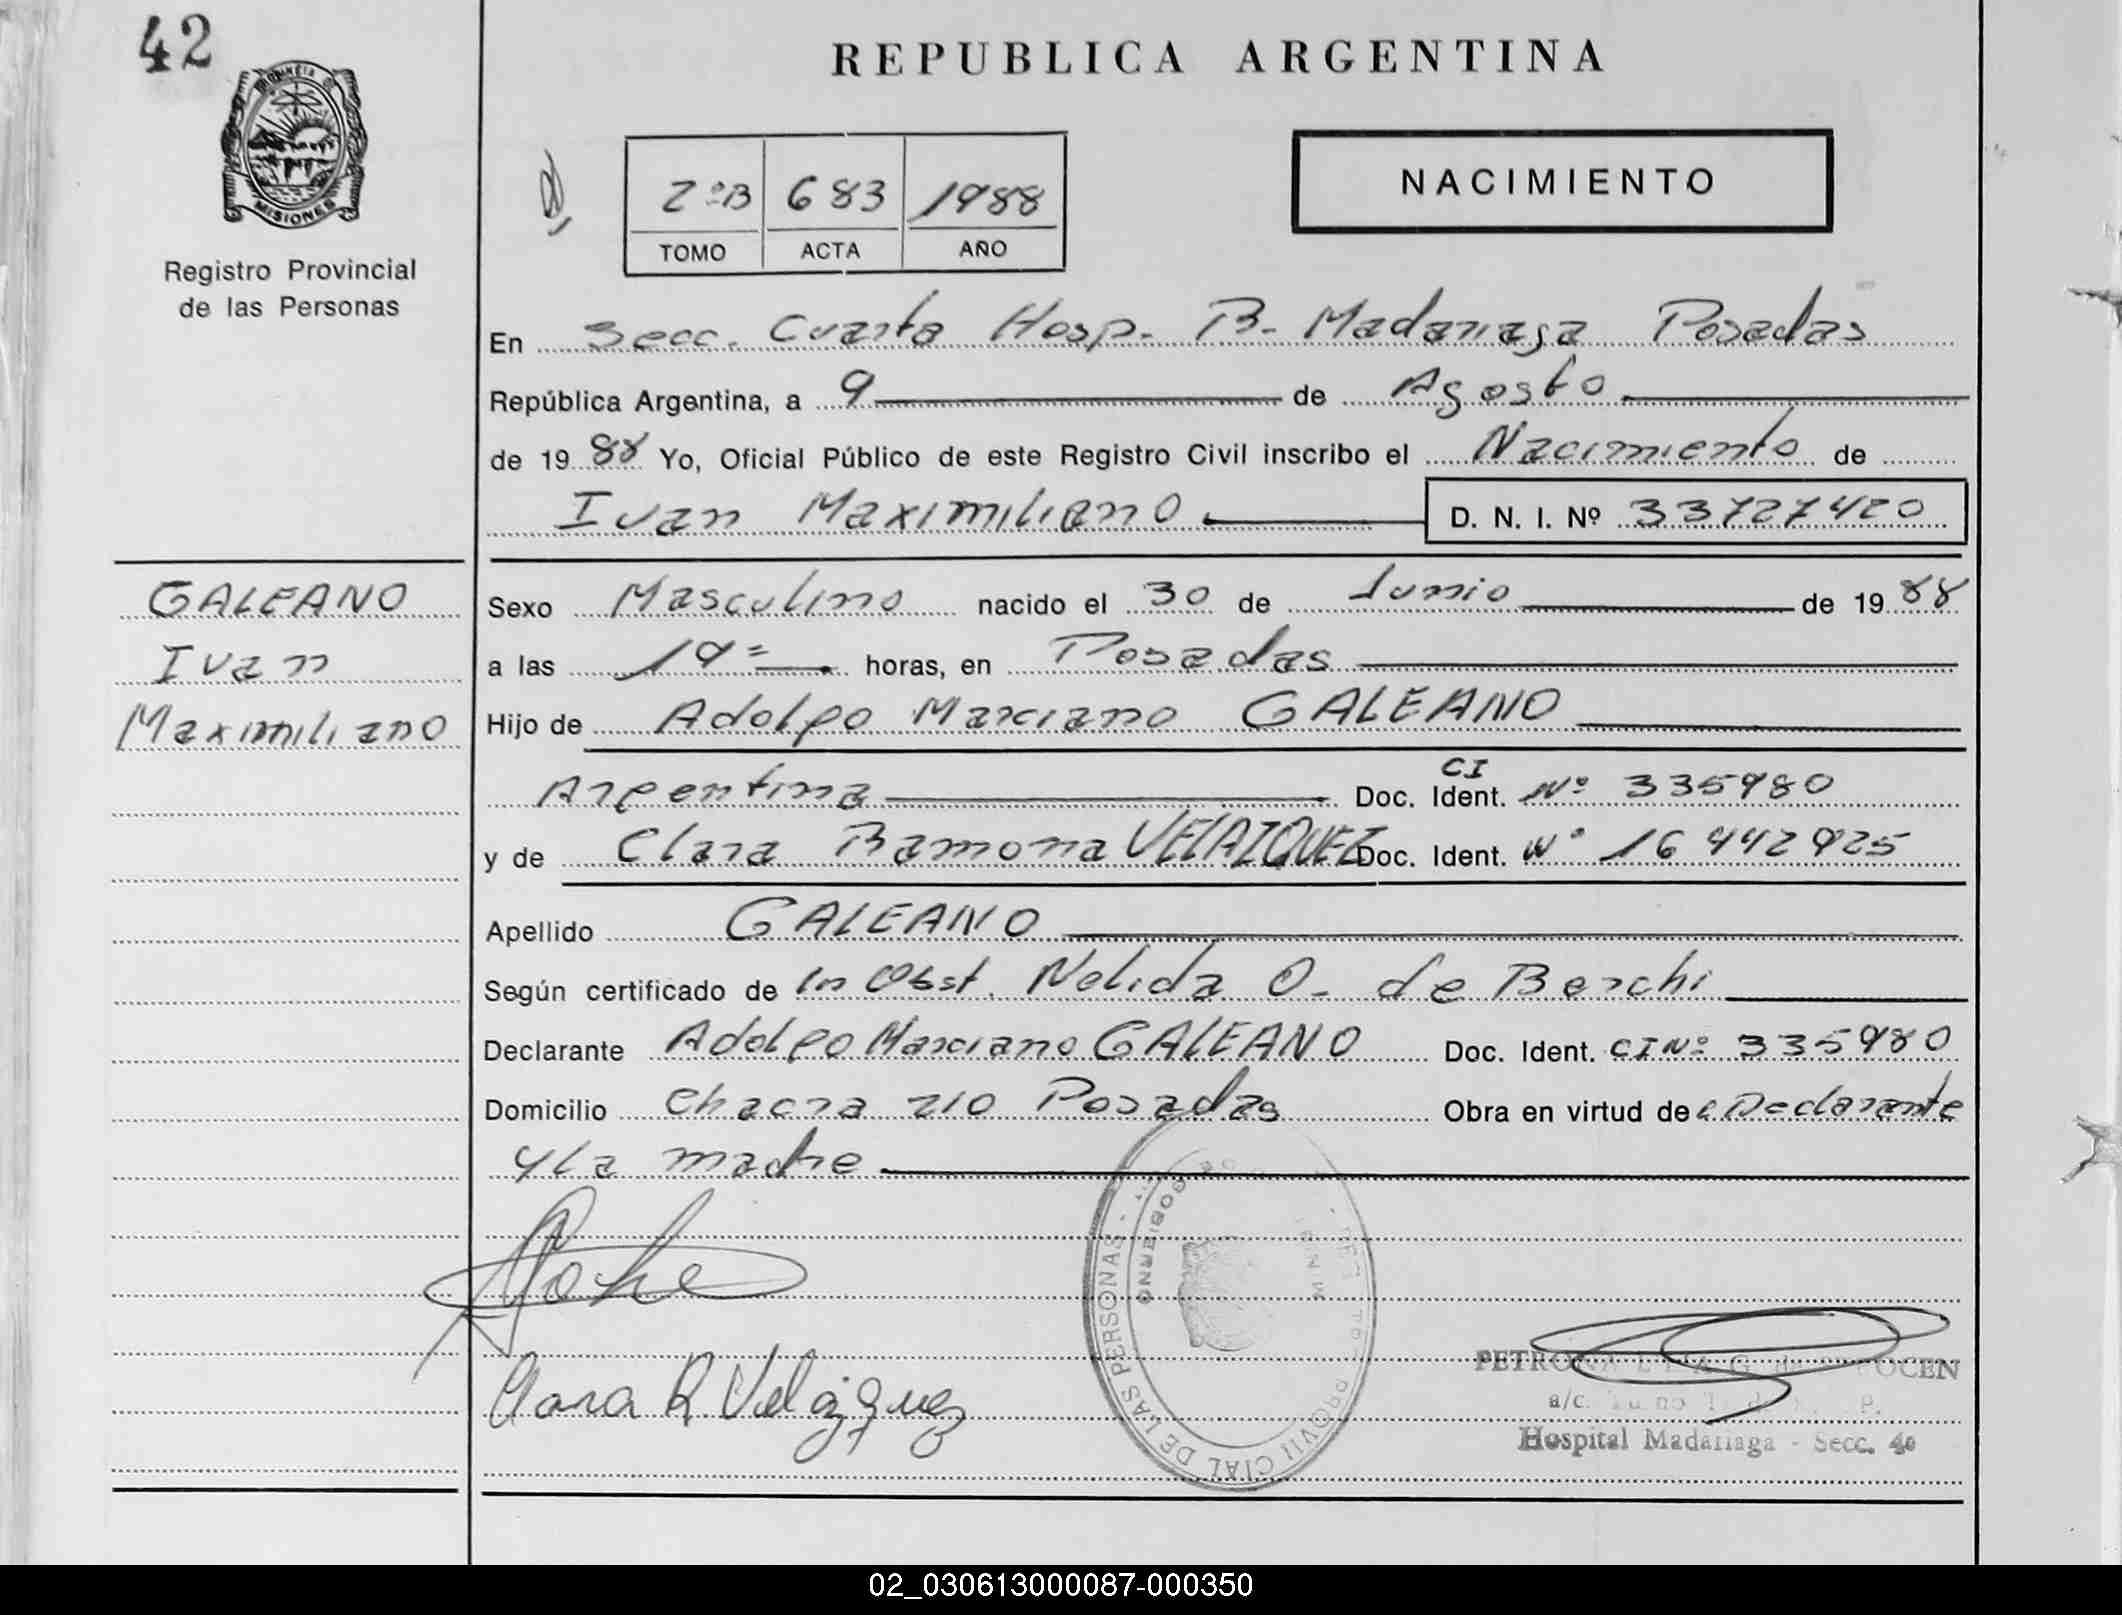 42
REPUBLICA ARGENTINA
PROVINCIA DE
MISIONES
Registro Provincial
de las Personas
2ºB 683 1988
TOMO ACTA AÑO
NACIMIENTO
En Secc. Cuarta Hosp. R. Madariaga Posadas
República Argentina, a 9 de Agosto
de 1988 Yo, Oficial Público de este Registro Civil inscribo el Nacimiento de
Ivan Maximiliano D. N. I. Nº 33727420
GALEANO
Ivan
Maximiliano
Sexo Masculino nacido el 30 de Junio de 1988
a las 19= horas, en Posadas
Hijo de Adolfo Marciano GALEANO
Argentina Doc. Ident. CI Nº 335980
y de Clara Ramona VELAZQUEZ Doc. Ident. Nº 16442925
Apellido GALEANO
Según certificado de la Obst. Nelida O. de Berchi
Declarante Adolfo Marciano GALEANO Doc. Ident. CI Nº 335980
Domicilio Chacra 210 Posadas Obra en virtud de Declarante
y la madre
Clara R Velázquez
PROVINCIAL DE LAS PERSONAS
GOBIERNO
PETRONA
a/c.
Hospital Madariaga - Secc. 4a
02_030613000087-000350